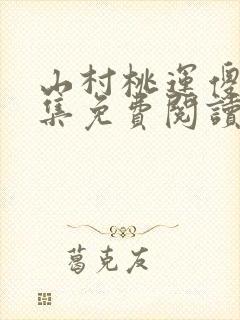 山村桃運傻
集免費閱讀
葛克友